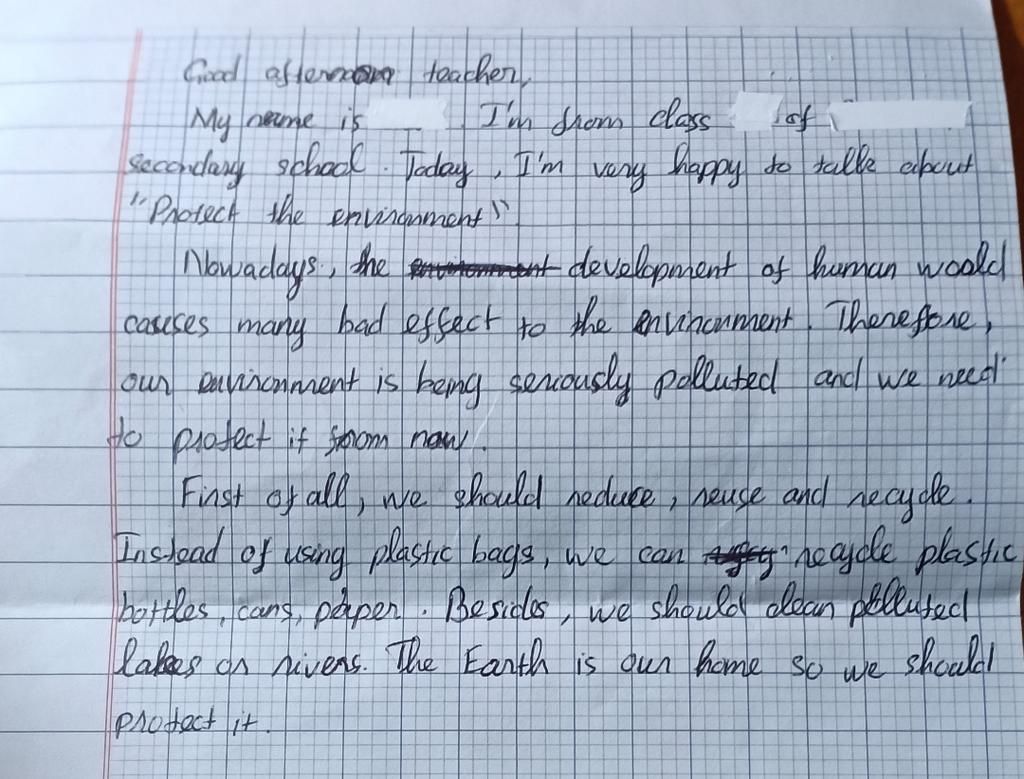 Good afternoon teacher,
My name is I'm from class of
secondary school. Today, I'm very happy to talke about
"Protect the environment"
Nowadays, the environment development of human woald
causes many bad effect to the environment. Therefore,
our environment is being seriously polluted and we need
to protect it from now.
First of all, we should reduce, reuse and recycle.
Instead of using plastic bags, we can recycle plastic
bottles, cans, paper. Besides, we should clean polluted
lakes or rivers. The Earth is our home so we should
protect it.